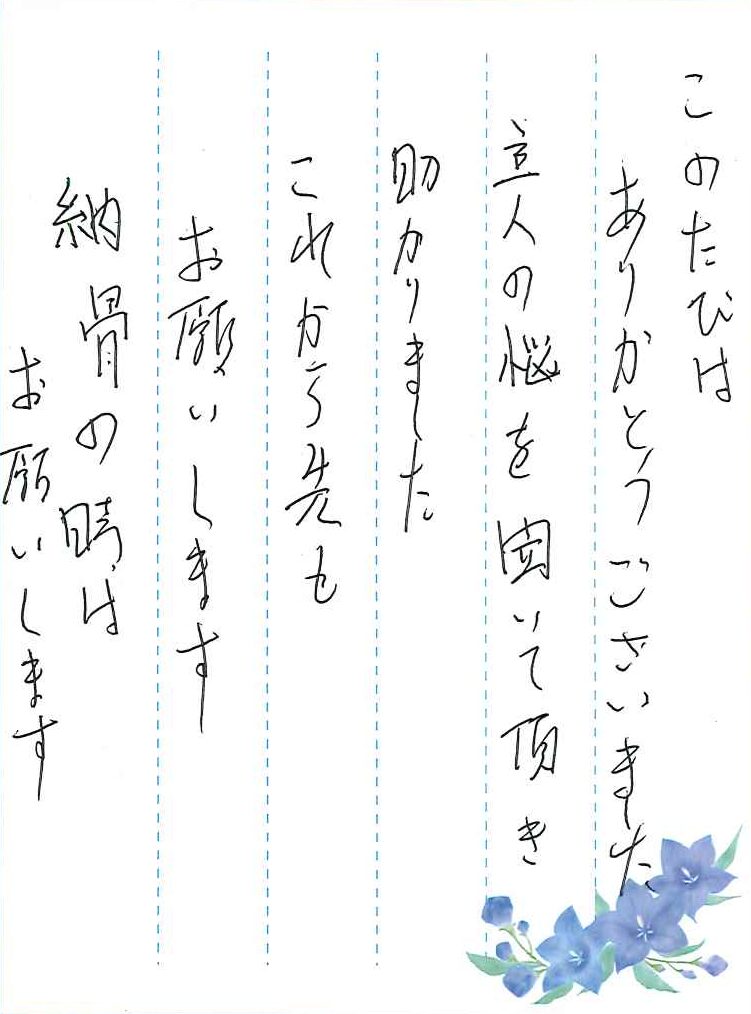 このたびは
ありがとうございました
主人の悩を聞いて頂き
助かりました
これから先も
お願いします
納骨の時は
お願いします